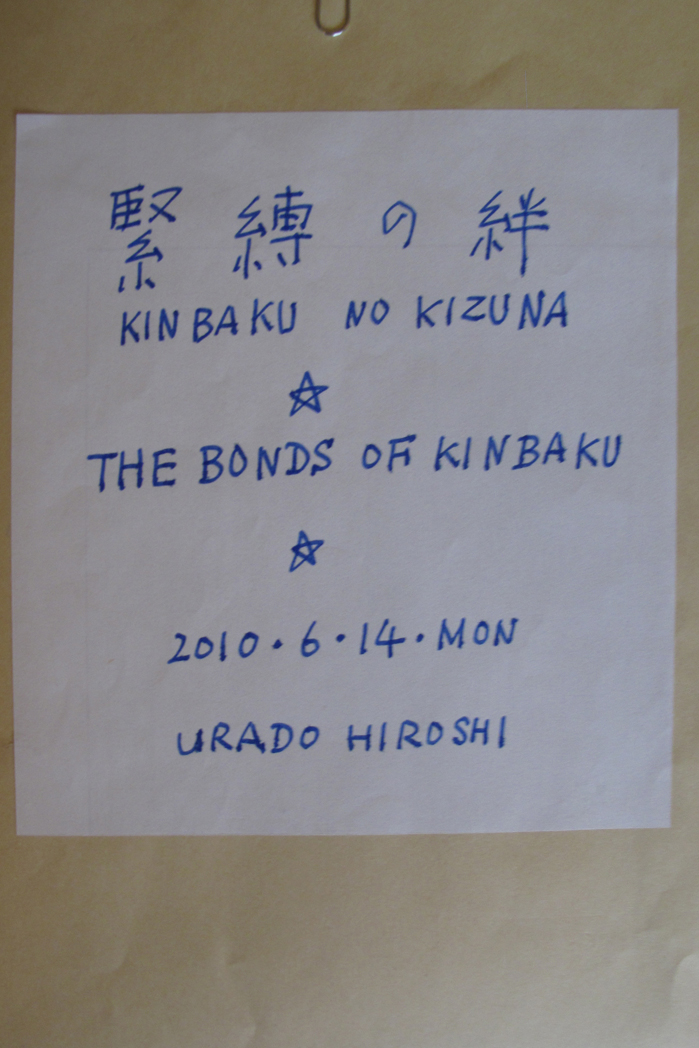 緊縛の絆
KINBAKU NO KIZUNA
☆
THE BONDS OF KINBAKU
☆
2010・6・14・MON
URADO HIROSHI